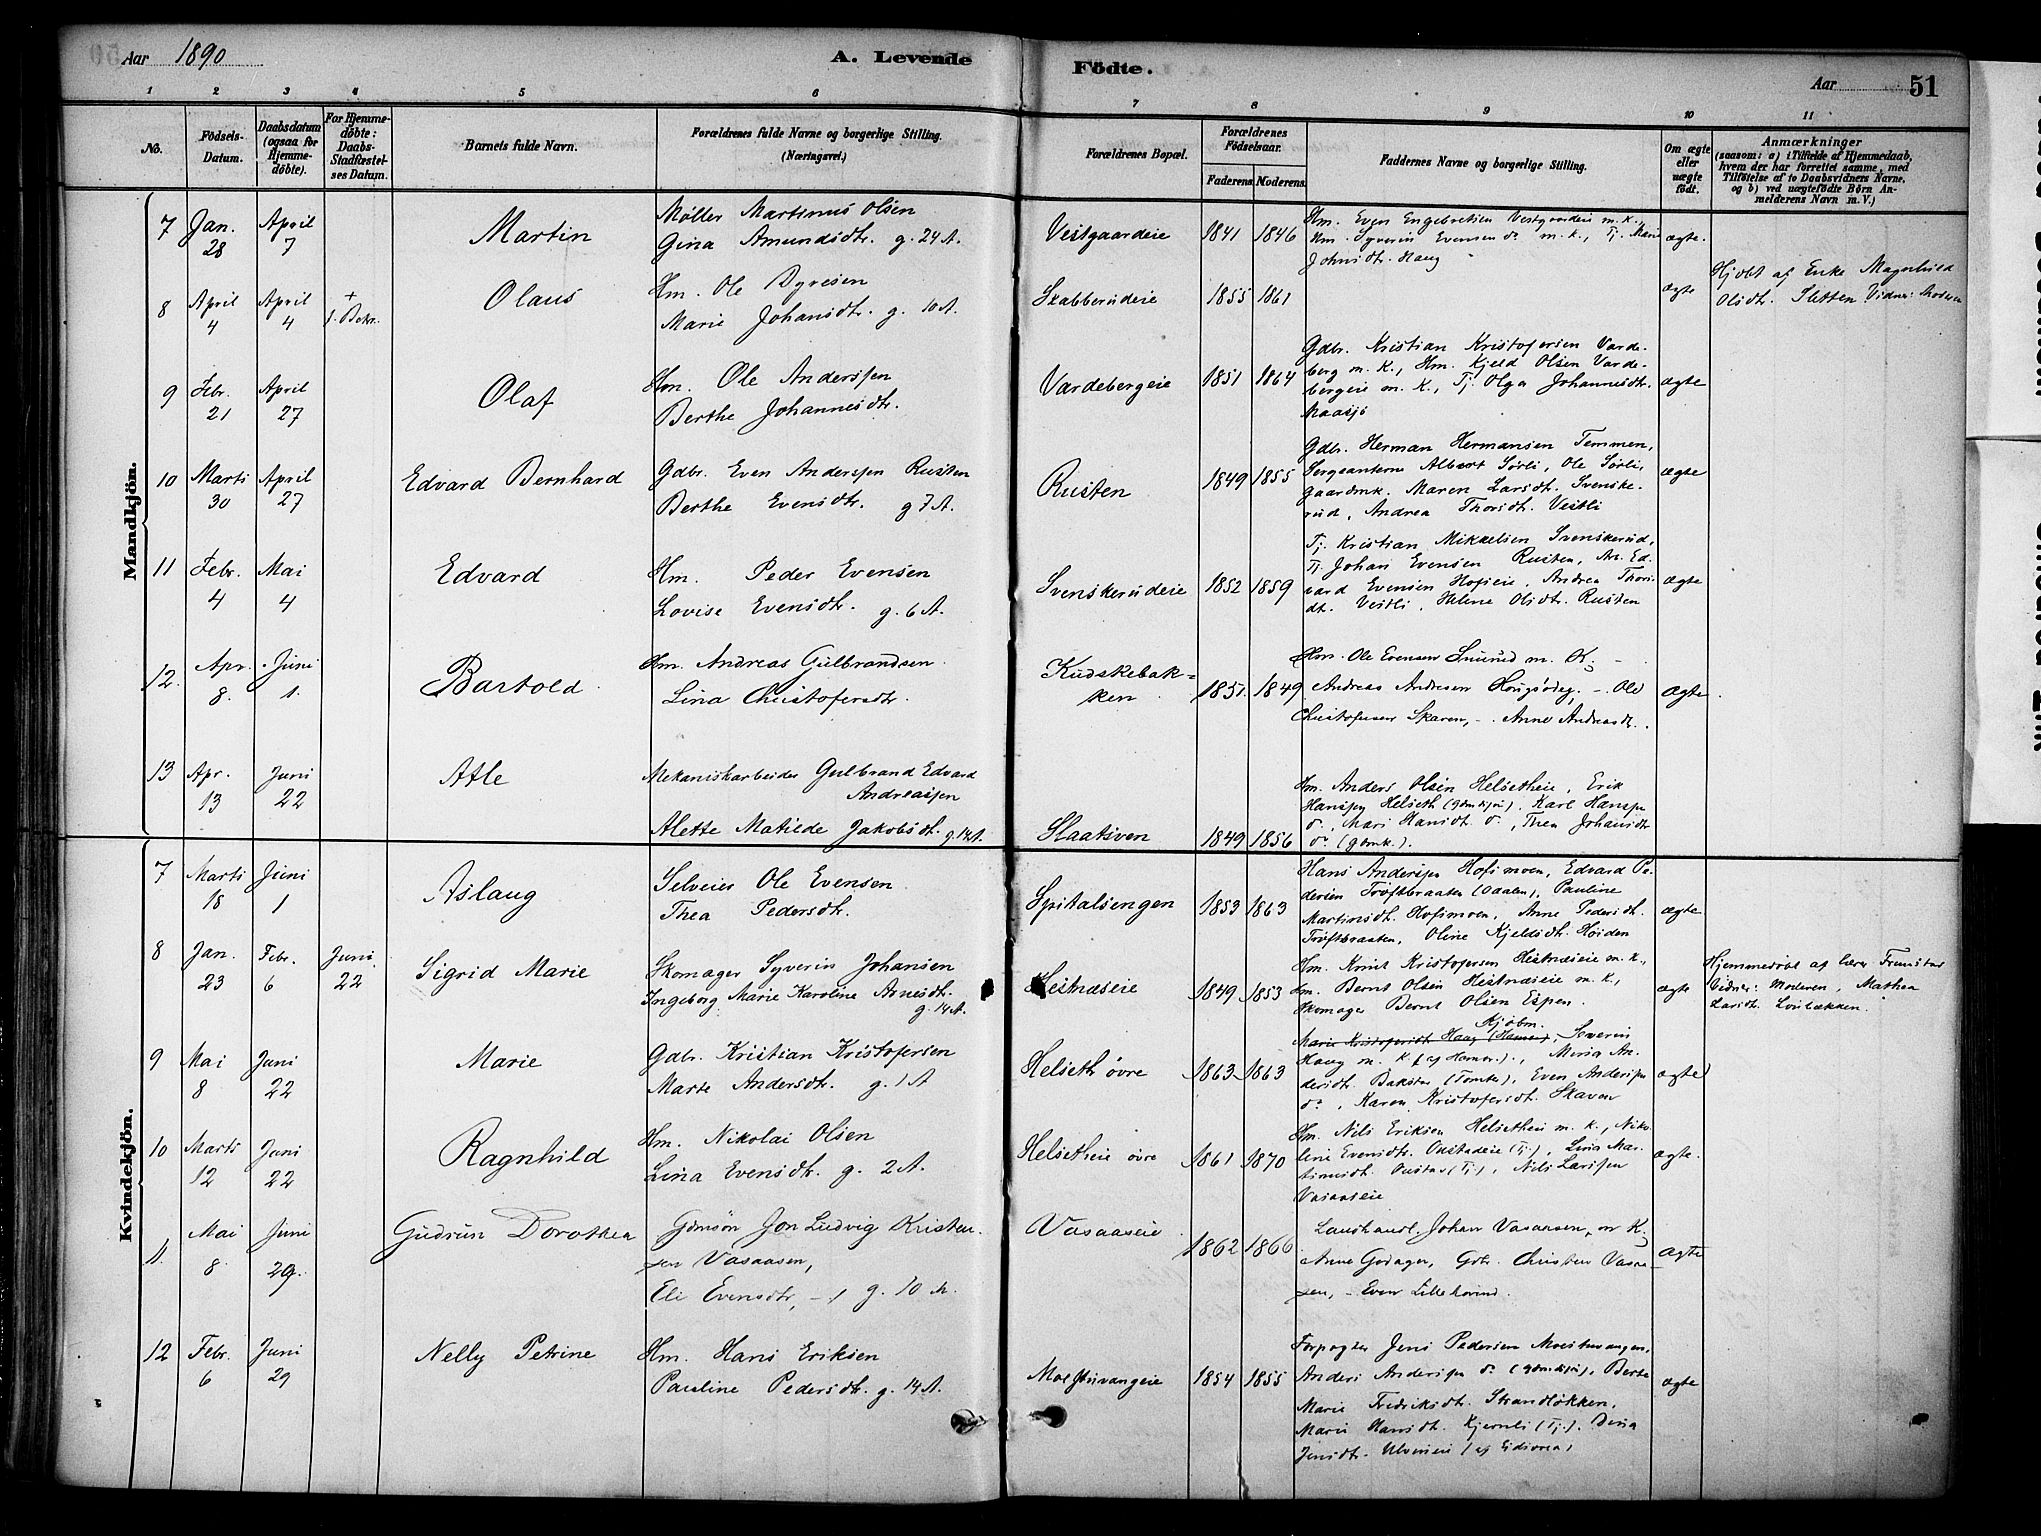 Aar 1890
A. Levende
Födte.
Aar
51
1 2 3 4 5 6 7 8 9 10 11
No.
Födsels-Datum.
Daabsdatum (ogsaa for Hjemme-döbte).
For Hjemme-döbte: Daabs-Stadfæstel-ses Datum.
Barnets fulde Navn.
Forældrenes fulde Navne og borgerlige Stilling.
(Næringsvei.)
Forældrenes Bopæl.
Forældrenes Födselsaar.
Faderens. Moderens.
Faddernes Navne og borgerlige Stilling.
Om ægte eller uægte født.
Anmærkninger
(saasom: a) i Tilfælde af Hjemmedaab,
hvem der har forrettet samme, med
Tilföielse af to Daabsvidners Navne,
og b) ved uægtefödte Börn An-
melderens Navn m. V.)
Mandkjön.
7 Jan. 28 April 7 Martin
Møller Martinus Olsen
Gina Amundsdtr. g. 24 A.
Vestgaardeie 1841 1846
Hm. Even Engebretsen Vestgaardeie m. k.,
Hm. Syverin Evensen do m. k., Tj. Marie
Johnsdtr. Haug
ægte.
8 April 4 April 4 + f. Bekr. Olaus
Hm. Ole Dyresen
Marie Johansdtr. g. 10 A.
Skabberudeie 1855 1861
ægte
Hjdbt af Enke Magnhild
Olsdt. Sletten Vidner: Moderen
9 Febr. 21 April 27 Olaf
Hm. Ole Anderssen
Berthe Johannesdtr.
Vardebergeie 1851 1864
Gdbr. Kristian Kristofersen Varde-
berg m. k., Hm. Kjeld Olsen Varde-
bergeie m. k., Tj. Olga Johannesdtr.
Maasjø
ægte
10 Marts 30 April 27 Edvard Bernhard
Gdbr. Even Anderssen Rusten
Berthe Evensdtr. g 7 A.
Rusten 1849 1855
Gdbr. Herman Hermansen Temmen,
Sergeanterne Albert Sørli, Ole Sørli,
gaardmk. Maren Larsdt. Svenske-
rud, Andrea Thorsdt. Vestli
ægte
11 Febr. 4 Mai 4 Edvard
Hm. Peder Evensen
Lovise Evensdtr. g. 6 A.
Svenskerudeie 1852 1859
Tj. Kristian Mikkelsen Svenskerud,
Tj. Johan Evensen Rusten, Ar. Ed-
vard Evensen Hofseie, Andrea Thors-
dt. Vestli, Helene Olsdt. Rusten
ægte
12. Apr. 8. Juni 1. Bartold
Hm. Andreas Gulbrandsen
Lina Christofersdtr.
Kudskebak-
ken 1851. 1849
Hm. Ole Evensen m. K.
Andreas Andresen - Ole
Christofersen Skaren, - Anne Andreasdtr.
ægte
13 Apr. 13 Juni 22 Atle
Mekaniskarbeider Gulbrand Edvard
Andreassen
Alette Matilde Jakobsdt. g. 12 A.
Slaatsven 1849 1856
Hm. Anders Olsen Helsetheie, Erik
Hanssen Helseth (gdmdssøn), Karl Hanssen
do, Mari Hansdt. do, Thea Johansdt
do (gdmk.).
Kvindekjön.
7 Marts 18 Juni 1 Aslaug
Selveier Ole Evensen
Thea Pedersdt.
Spitalsengen 1853 1863
Hans Anderssen Hofsmoen, Edvard Pe-
dersen Trøftbraaten (Odalen), Pauline
Martinsdt. Hofsmoen, Anne Pedersdt.
Trøftbraaten, Oline Kjeldsdt. Høiden
ægte
8 Jan. 23 Febr. 6 Juni 22 Sigrid Marie
Skomager Syverin Johansen
Ingeborg Marie Karoline Arnesdt.
g. 14 A.
Hestnæseie 1849 1853
Hm. Knut Kristofersen Hestnæseie m. k.,
Hm. Bernt Olsen Hestnæseie m. k.,
Skomager Bernt Olsen Espen.
ægte
Hjemmedøbt af lærer Frenstad
Vidner: Moderen, Mathea
Larsdt. Lonbækken.
9 Mai 8 Juni 22 Marie
Gdbr. Kristian Kristofersen
Marte Andersdt. g. 1 A
Helseth øvre 1863 1863
Marie Kristofersdt Haug (Hamar), Kjøbm. Severin
Haug m. k. (af Hamar), Mina An-
dersdt. Bakstad (Tomter), Even Anderssen
do, Karen Kristofersdt. Skaven
ægte
10 Marts 12 Juni 22 Ragnhild
Hm. Nikolai Olsen
Lina Evensdtr. g. 2 A.
Helsetheie øvre 1861 1870
Hm. Nils Eriksen Helsetheie m. k., Niko-
line Evensdtr. Onstadeie (Tj), Lina Mar-
tinusdt. Onstad (Tj), Nils Larssen
Vasaaseie
ægte.
11. Mai 8. Juni 29. Gudrun Dorothea
Gdmsøn Jon Ludvig Kristen-
sen Vasaasen,
Eli Evensdtr, - g. 10 M.
Vasaaseie 1862 1866
Landhandl. Johan Vasaasen, m K,
Anne Godager, Gbr. Christen Vasaa-
sen, - Even Lillehovind.
ægte
12 Febr. 6 Juni 29 Nelly Petrine
Hm. Hans Eriksen
Pauline Pedersdt. g. 14 A.
Moestuvangeie 1854 1855
Forpagter Jens Pedersen Moestuvangen,
Anders Anderssen do (gdmdssøn), Berte
Marie Fredriksdt. Strandløkken,
Marie Hansdt. Kjernli (Tj.), Dina
Jensdt. Ulvenseie (af Eidsvold)
ægte